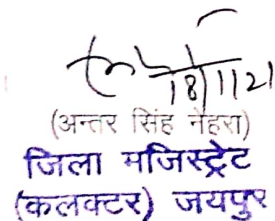 18/11/21
(अन्तर सिंह नेहरा)
जिला मजिस्ट्रेट
(कलक्टर) जयपुर